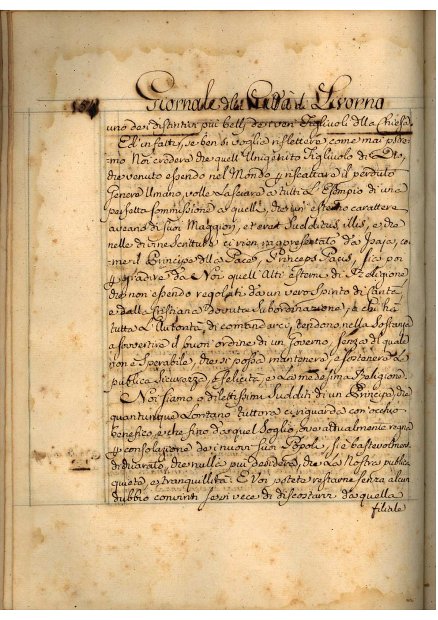 Giornale della Città di Livorno
uno dei distintivi più belli dei veri Figliuoli della Chiesa.
Ed infatti, se ben si voglia riflettere, come mai potre
mo Noi credere che quell'Unigenito Figliuolo di Dio,
che venuto essendo nel Mondo a riscattare il perduto
Genere Umano, volle lasciare a tutti l'Esempio di una
perfetta sommissione a quelli, che un esterno carattere
aveano di suoi Maggiori, et erat subditus illis, e che
nelle divine Scritture ci vien rappresentato da Isaja, co
me il Principe della Pace, Princeps Pacis, sia poi
gradire da Noi quell'Atti Esterni di Religione
che non essendo regolati da un vero Spirito di
e dalla Cristiana dovuta Subordinazione, a chi ha
tutta l'Autorità di comandarci, tendano nella Sostanza
a sovvertire il buon'ordine di un Governo, senza di quale
non è sperabile, che si possa mantenere, e sostenere la
pubblica sicurezza, e felicità, e la medesima Religione.
Noi siamo o dilettissimi Sudditi di un Principe, che
quantunque lontano tuttora ci riguarda con occhio
benefico, e che fino da quel Soglio, ove attualmente regna
consolazione dei nuovi suoi Popoli, si è bastevolmente
dichiarato, che nulla più desidera, che la Nostra pubblica
quiete, e tranquillità. E Voi potete restarne senza alcun
dubbio convinti se in vece di discostarvi da quella
filiale